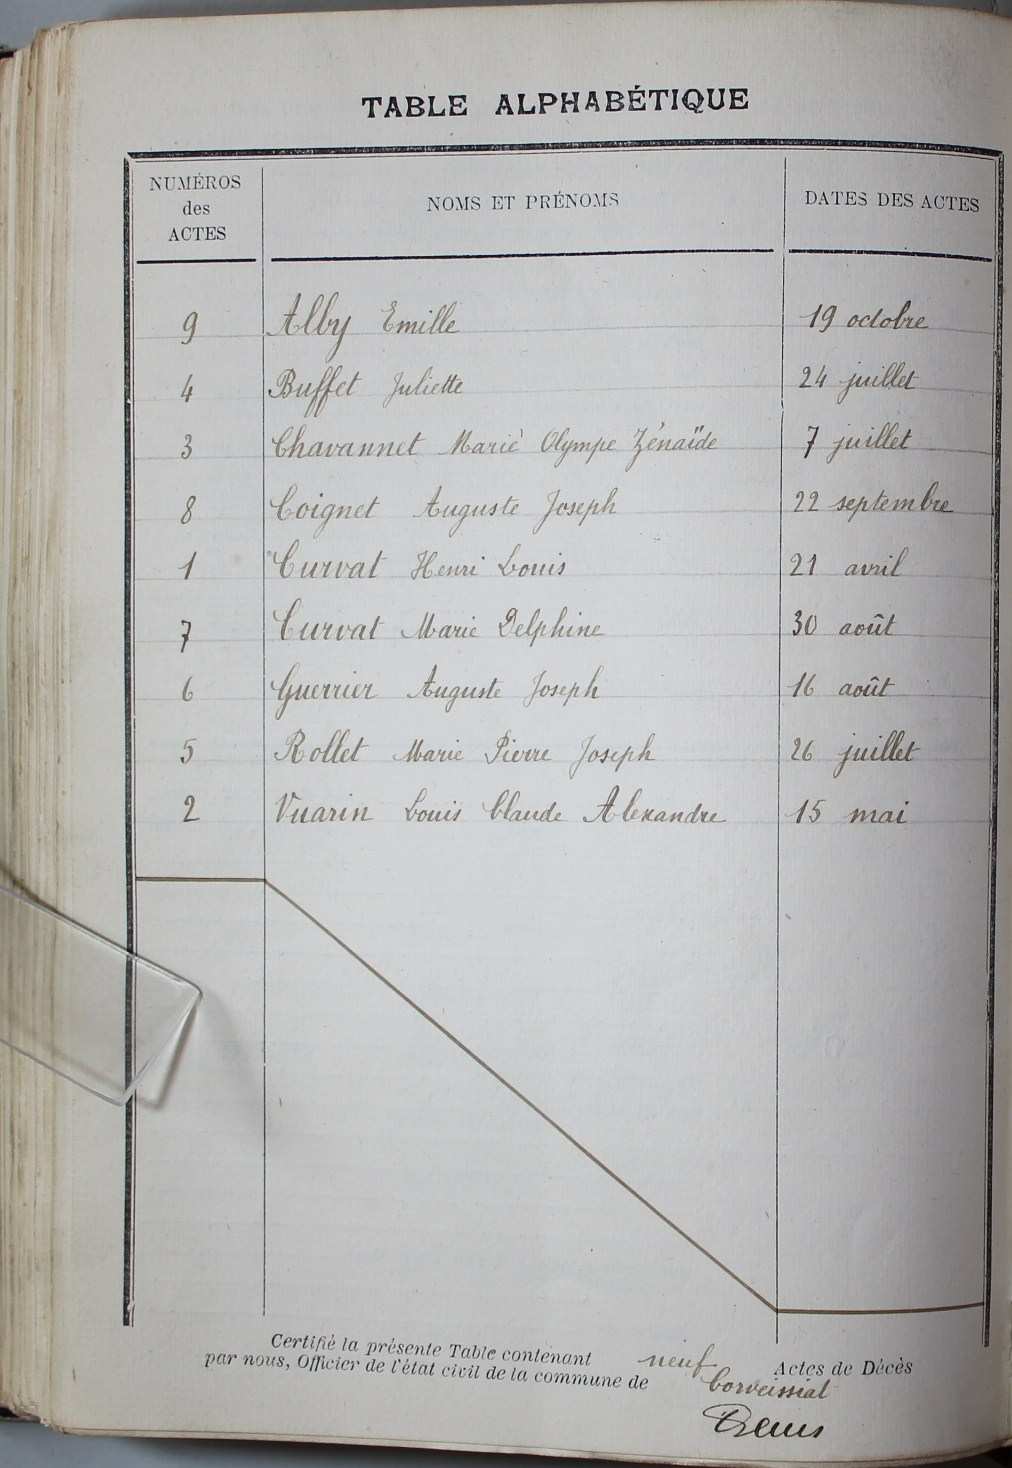 TABLE ALPHABÉTIQUE
NUMÉROS des ACTES NOMS ET PRÉNOMS DATES DES ACTES
9 Alby Emille 19 octobre
4 Buffet Juliette 24 juillet
3 Chavannet Marie Olympe Zénaïde 7 juillet
8 Coignet Auguste Joseph 22 septembre
1 Curvat Henri Louis 21 avril
7 Curvat Marie Delphine 30 août
6 Guerrier Auguste Joseph 16 août
5 Rollet Marie Pierre Joseph 26 juillet
2 Vuarin Louis Claude Alexandre 15 mai
Certifié la présente Table contenant neuf Actes de Décès
par nous, Officier de l'état civil de la commune de Corveissiat